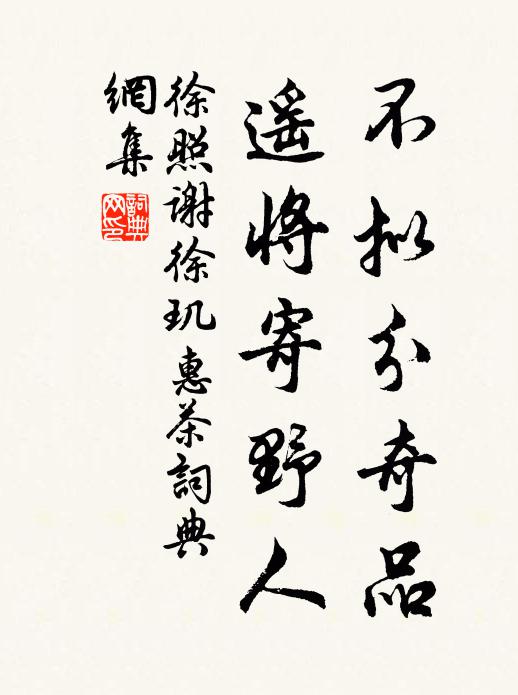 不拟分奇品
遥將寄野人
徐照谢徐玑惠茶詞典
網集
詞典
网印